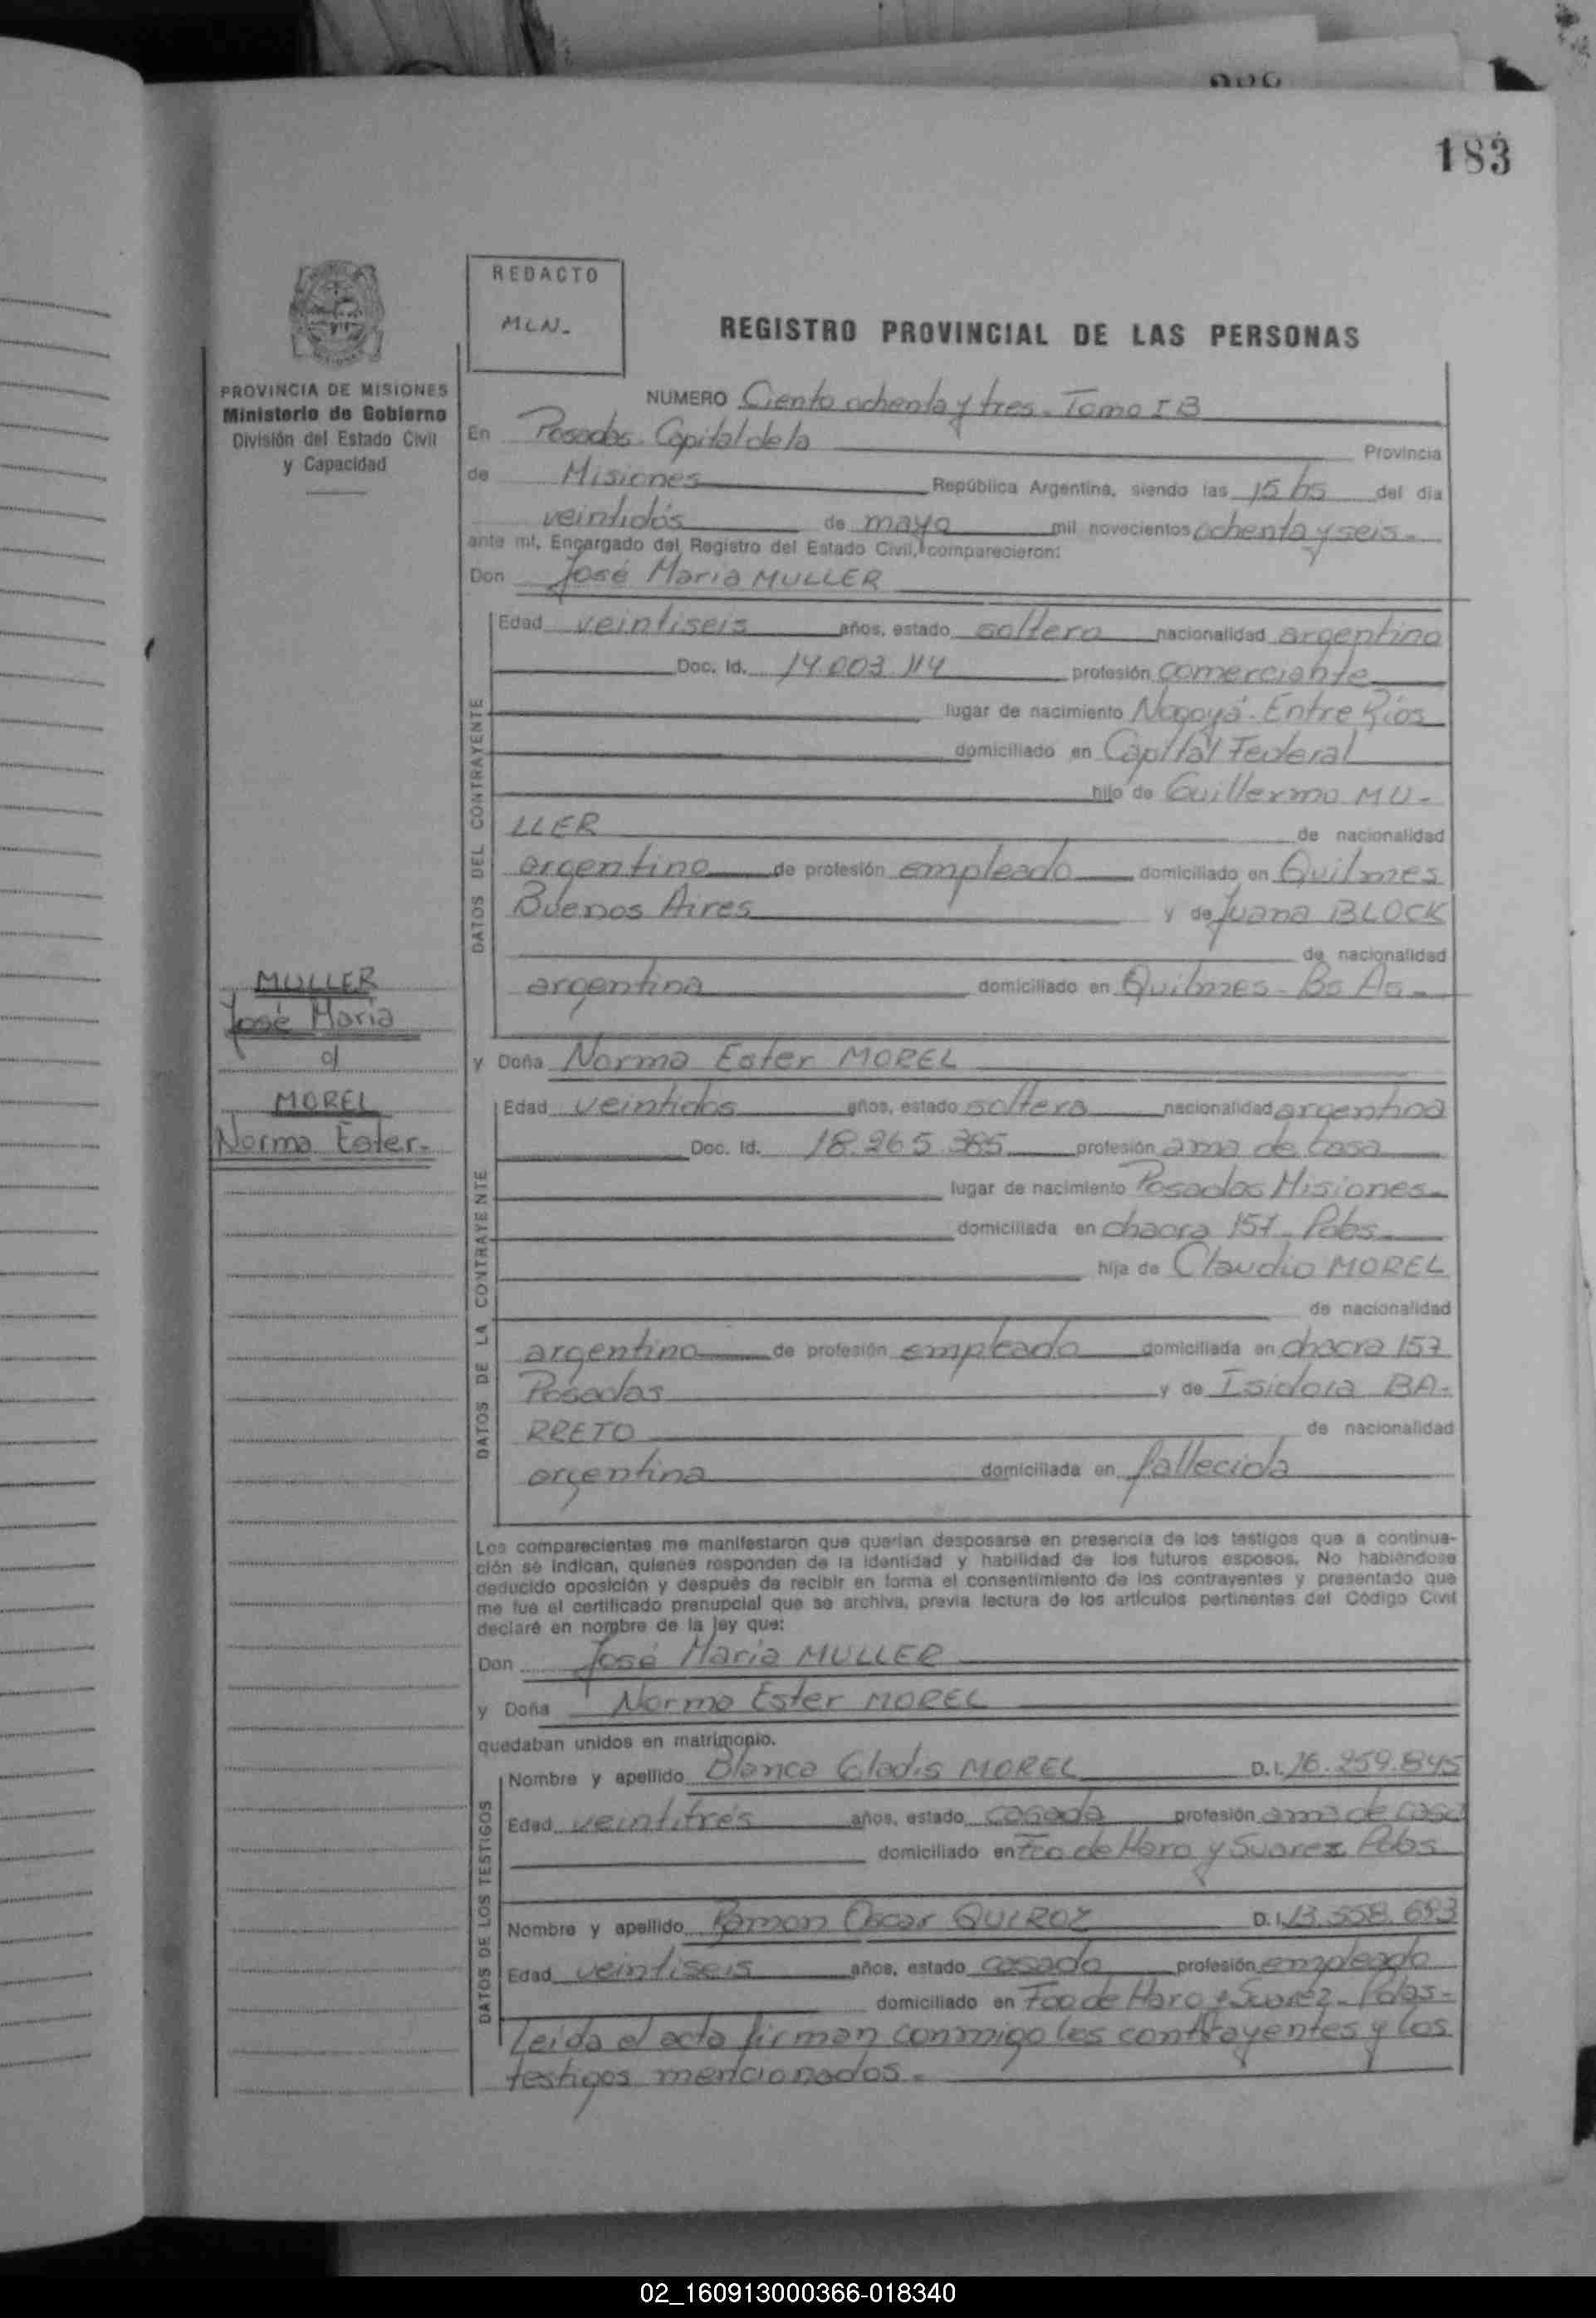 183
REDACTO
MLN.
REGISTRO PROVINCIAL DE LAS PERSONAS
PROVINCIA DE MISIONES
Ministerio de Gobierno
División del Estado Civil
y Capacidad
NUMERO Ciento ochenta y tres. Tomo I B
En Posadas. Capital de la Provincia
de Misiones República Argentina, siendo las 15 hs del día
veintidós de mayo mil novecientos ochenta y seis.
ante mí, Encargado del Registro del Estado Civil, comparecieron:
Don José Maria MULLER
DATOS DEL CONTRAYENTE
Edad veintiseis años, estado soltero nacionalidad argentino
Doc. Id. 14.003.114 profesión comerciante
lugar de nacimiento Nogoyá. Entre Ríos
domiciliado en Capital Federal
hijo de Guillermo MU-
LLER de nacionalidad
argentino de profesión empleado domiciliado en Quilmes
Buenos Aires y de Juana BLOCK
de nacionalidad
argentina domiciliado en Quilmes - Bs As.
MULLER
José Maria
c/
MOREL
Norma Ester.
y Doña Norma Ester MOREL
DATOS DE LA CONTRAYENTE
Edad veintidos años, estado soltera nacionalidad argentina
Doc. Id. 18.265.385 profesión ama de casa
lugar de nacimiento Posadas Misiones
domiciliada en chacra 157 - Pdas.
hija de Claudio MOREL
de nacionalidad
argentino de profesión empleado domiciliada en chacra 157
Posadas y de Isidora BA-
RRETO de nacionalidad
argentina domiciliada en fallecida
Los comparecientes me manifestaron que querían desposarse en presencia de los testigos que a continua-
ción se indican, quienes responden de la identidad y habilidad de los futuros esposos. No habiéndose
deducido oposición y después de recibir en forma el consentimiento de los contrayentes y presentado que
me fue el certificado prenupcial que se archiva, previa lectura de los artículos pertinentes del Código Civil
declaré en nombre de la ley que:
Don José Maria MULLER
y Doña Norma Ester MOREL
quedaban unidos en matrimonio.
DATOS DE LOS TESTIGOS
Nombre y apellido Blanca Gladis MOREL D.I. 16.259.845
Edad veintitrés años, estado casada profesión ama de casa
domiciliado en Fco de Haro y Suarez Pdas
Nombre y apellido Ramon Oscar QUIROZ D.I. 13.558.693
Edad veintiseis años, estado casado profesión empleado
domiciliado en Fco de Haro y Suarez - Pdas -
Leída el acta firman conmigo los contrayentes y los
testigos mencionados.
02_160913000366-018340